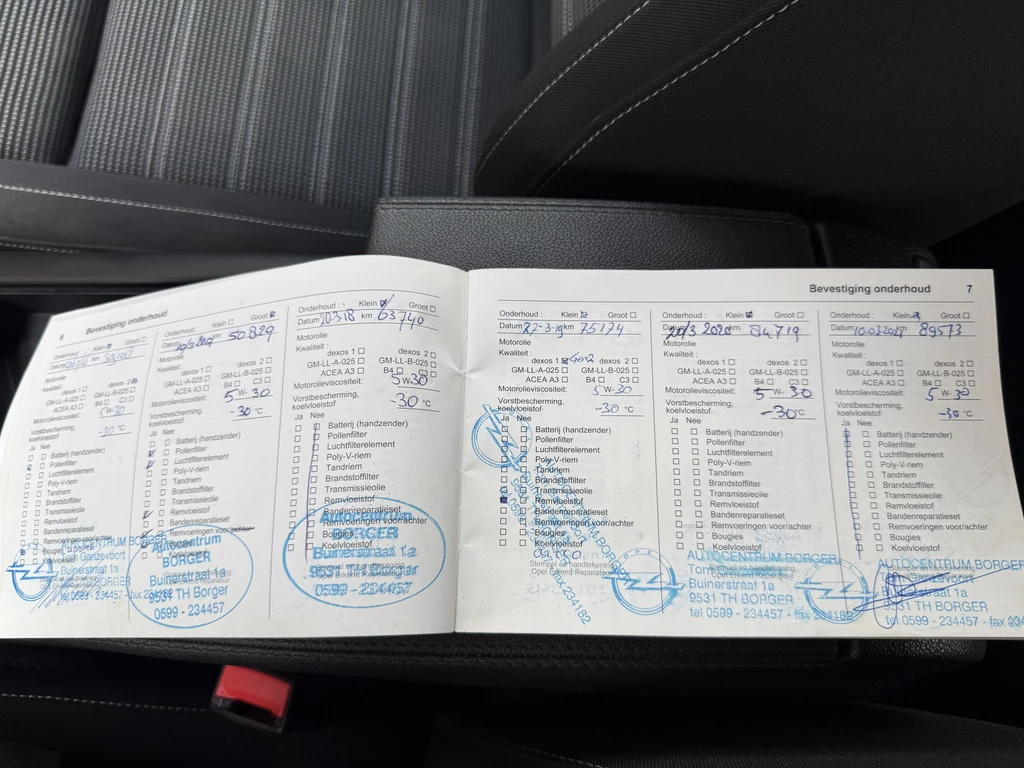 6 Bevestiging onderhoud
Onderhoud: Klein ☒ Groot ☐
Datum km
Motorolie
Kwaliteit: dexos 1 ☐ dexos 2
GM-LL-A-025 ☐ GM-LL-B-025 ☐
ACEA A3 ☐ B4 ☐ C3 ☐
Motorolieviscositeit: 5W-30
Vorstbescherming,
koelvloeistof -30 °C
Ja Nee
Batterij (handzender)
Pollenfilter
Luchtfilterelement
Poly-V-riem
Tandriem
Brandstoffilter
Transmissieolie
Remvloeistof
Bandenreparatieset
Remvoeringen voor/achter
Bougies
AUTOCENTRUM BORGER
Buinerstraat 1a
9531 TH BORGER
Onderhoud: Klein ☐ Groot ☒
Datum km 50829
Motorolie
Kwaliteit: dexos 1 ☐ dexos 2 ☐
GM-LL-A-025 ☐ GM-LL-B-025 ☐
ACEA A3 ☐ B4 ☐ C3 ☐
Motorolieviscositeit: 5W-30
Vorstbescherming,
koelvloeistof -30 °C
Ja Nee
Batterij (handzender)
Pollenfilter
Luchtfilterelement
Poly-V-riem
Tandriem
Brandstoffilter
Transmissieolie
Remvloeistof
Bandenreparatieset
Remvoeringen voor/achter
Autocentrum
BORGER
Buinerstraat 1a
9531 TH Borger
0599 - 234457
Onderhoud: Klein ☒ Groot ☐
Datum 20-3-18 km 63740
Motorolie
Kwaliteit: dexos 1 ☐ dexos 2 ☐
GM-LL-A-025 ☐ GM-LL-B-025 ☐
ACEA A3 ☐ B4 ☐ C3 ☐
Motorolieviscositeit: 5W30
Vorstbescherming,
koelvloeistof -30 °C
Ja Nee
Batterij (handzender)
Pollenfilter
Luchtfilterelement
Poly-V-riem
Tandriem
Brandstoffilter
Transmissieolie
Remvloeistof
Bandenreparatieset
Remvoeringen voor/achter
Bougies
Koelvloeistof
Autocentrum
BORGER
Buinerstraat 1a
9531 TH Borger
0599 - 234457
Bevestiging onderhoud 7
Onderhoud: Klein ☒ Groot ☐
Datum 22-3-19 km 75174
Motorolie
Kwaliteit: dexos 1 ☒ Gen2 dexos 2 ☐
GM-LL-A-025 ☐ GM-LL-B-025 ☐
ACEA A3 ☐ B4 ☐ C3 ☐
Motorolieviscositeit: 5W-30
Vorstbescherming,
koelvloeistof -30 °C
Ja Nee
Batterij (handzender)
Pollenfilter
Luchtfilterelement
Poly-V-riem
Tandriem
Brandstoffilter
Transmissieolie
Remvloeistof
Bandenreparatieset
Remvoeringen voor/achter
Bougies
Koelvloeistof
Stempel en handtekening
Opel Erkend Reparateur
234182
Onderhoud: Klein ☒ Groot ☐
Datum 20/3 2020 km 84719
Motorolie
Kwaliteit: dexos 1 ☐ dexos 2 ☐
GM-LL-A-025 ☐ GM-LL-B-025 ☐
ACEA A3 ☐ B4 ☐ C3 ☐
Motorolieviscositeit: 5W-30
Vorstbescherming,
koelvloeistof -30°C
Ja Nee
Batterij (handzender)
Pollenfilter
Luchtfilterelement
Poly-V-riem
Tandriem
Brandstoffilter
Transmissieolie
Remvloeistof
Bandenreparatieset
Remvoeringen voor/achter
Bougies
Koelvloeistof
OPEL
AUTOCENTRUM BORGER
Buinerstraat 1a
9531 TH BORGER
tel 0599 - 234457 - fax 234182
Onderhoud: Klein ☒ Groot ☐
Datum km 89573
Motorolie
Kwaliteit: dexos 1 ☐ dexos 2 ☐
GM-LL-A-025 ☐ GM-LL-B-025 ☐
ACEA A3 ☐ B4 ☐ C3 ☐
Motorolieviscositeit: 5W-30
Vorstbescherming,
koelvloeistof °C
Ja Nee
Batterij (handzender)
Pollenfilter
Luchtfilterelement
Poly-V-riem
Tandriem
Brandstoffilter
Transmissieolie
Remvloeistof
Bandenreparatieset
Remvoeringen voor/achter
Bougies
Koelvloeistof
AUTOCENTRUM BORGER
9531 TH BORGER
tel 0599 - 234457 - fax